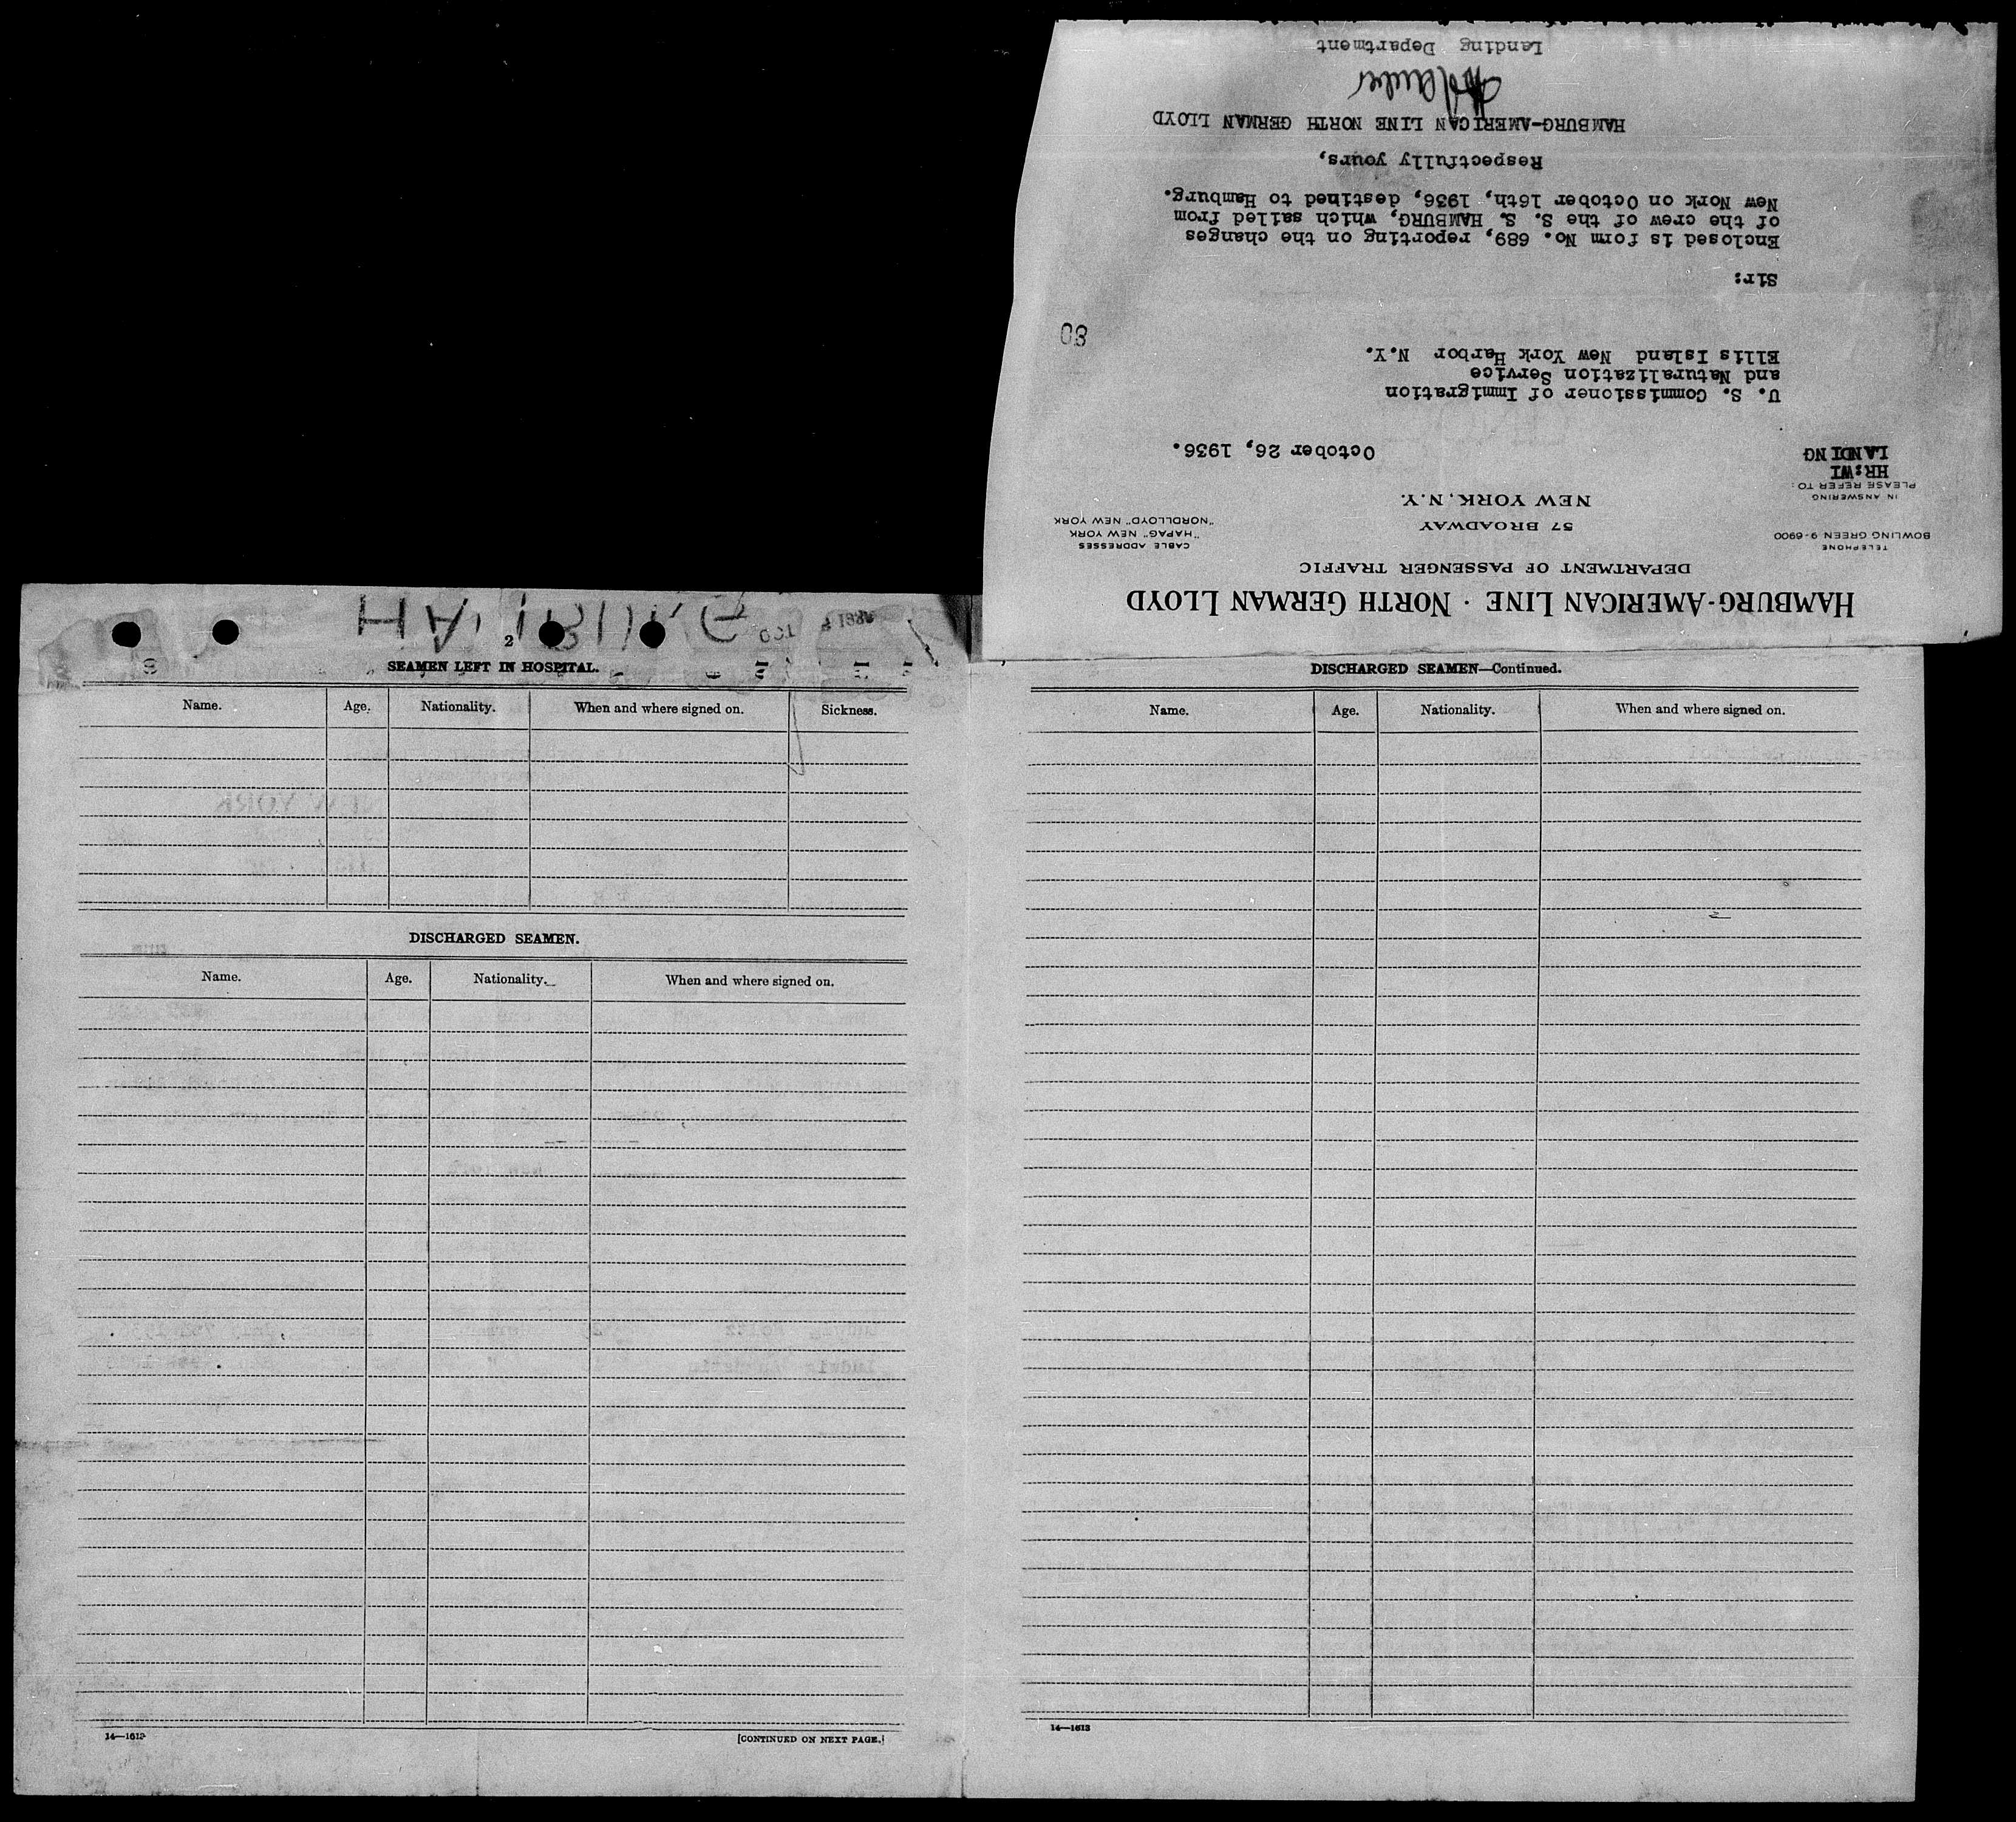 HAMBURG-AMERICAN LINE · NORTH GERMAN LLOYD
DEPARTMENT OF PASSENGER TRAFFIC
TELEPHONE
BOWLING GREEN 9-6900
57 BROADWAY
NEW YORK, N.Y.
CABLE ADDRESSES
"HAPAG" NEW YORK
"NORDLLOYD" NEW YORK
IN ANSWERING
PLEASE REFER TO:
HR:WI
LANDING
October 26, 1936.
U. S. Commissioner of Immigration
and Naturalization Service
Ellis Island New York Harbor N.Y.
80
Sir:
Enclosed is form No. 689, reporting on the changes
of the crew of the S. S. HAMBURG, which sailed from
New Nork on October 16th, 1936, destined to Hamburg.
Respectfully yours,
HAMBURG-AMERICAN LINE NORTH GERMAN LLOYD
Landing Department
HAMBURG
2
SEAMEN LEFT IN HOSPITAL.
Name. Age. Nationality. When and where signed on. Sickness.
DISCHARGED SEAMEN.
Name. Age. Nationality. When and where signed on.
14—1613
[CONTINUED ON NEXT PAGE.]
DISCHARGED SEAMEN—Continued.
Name. Age. Nationality. When and where signed on.
14—1613